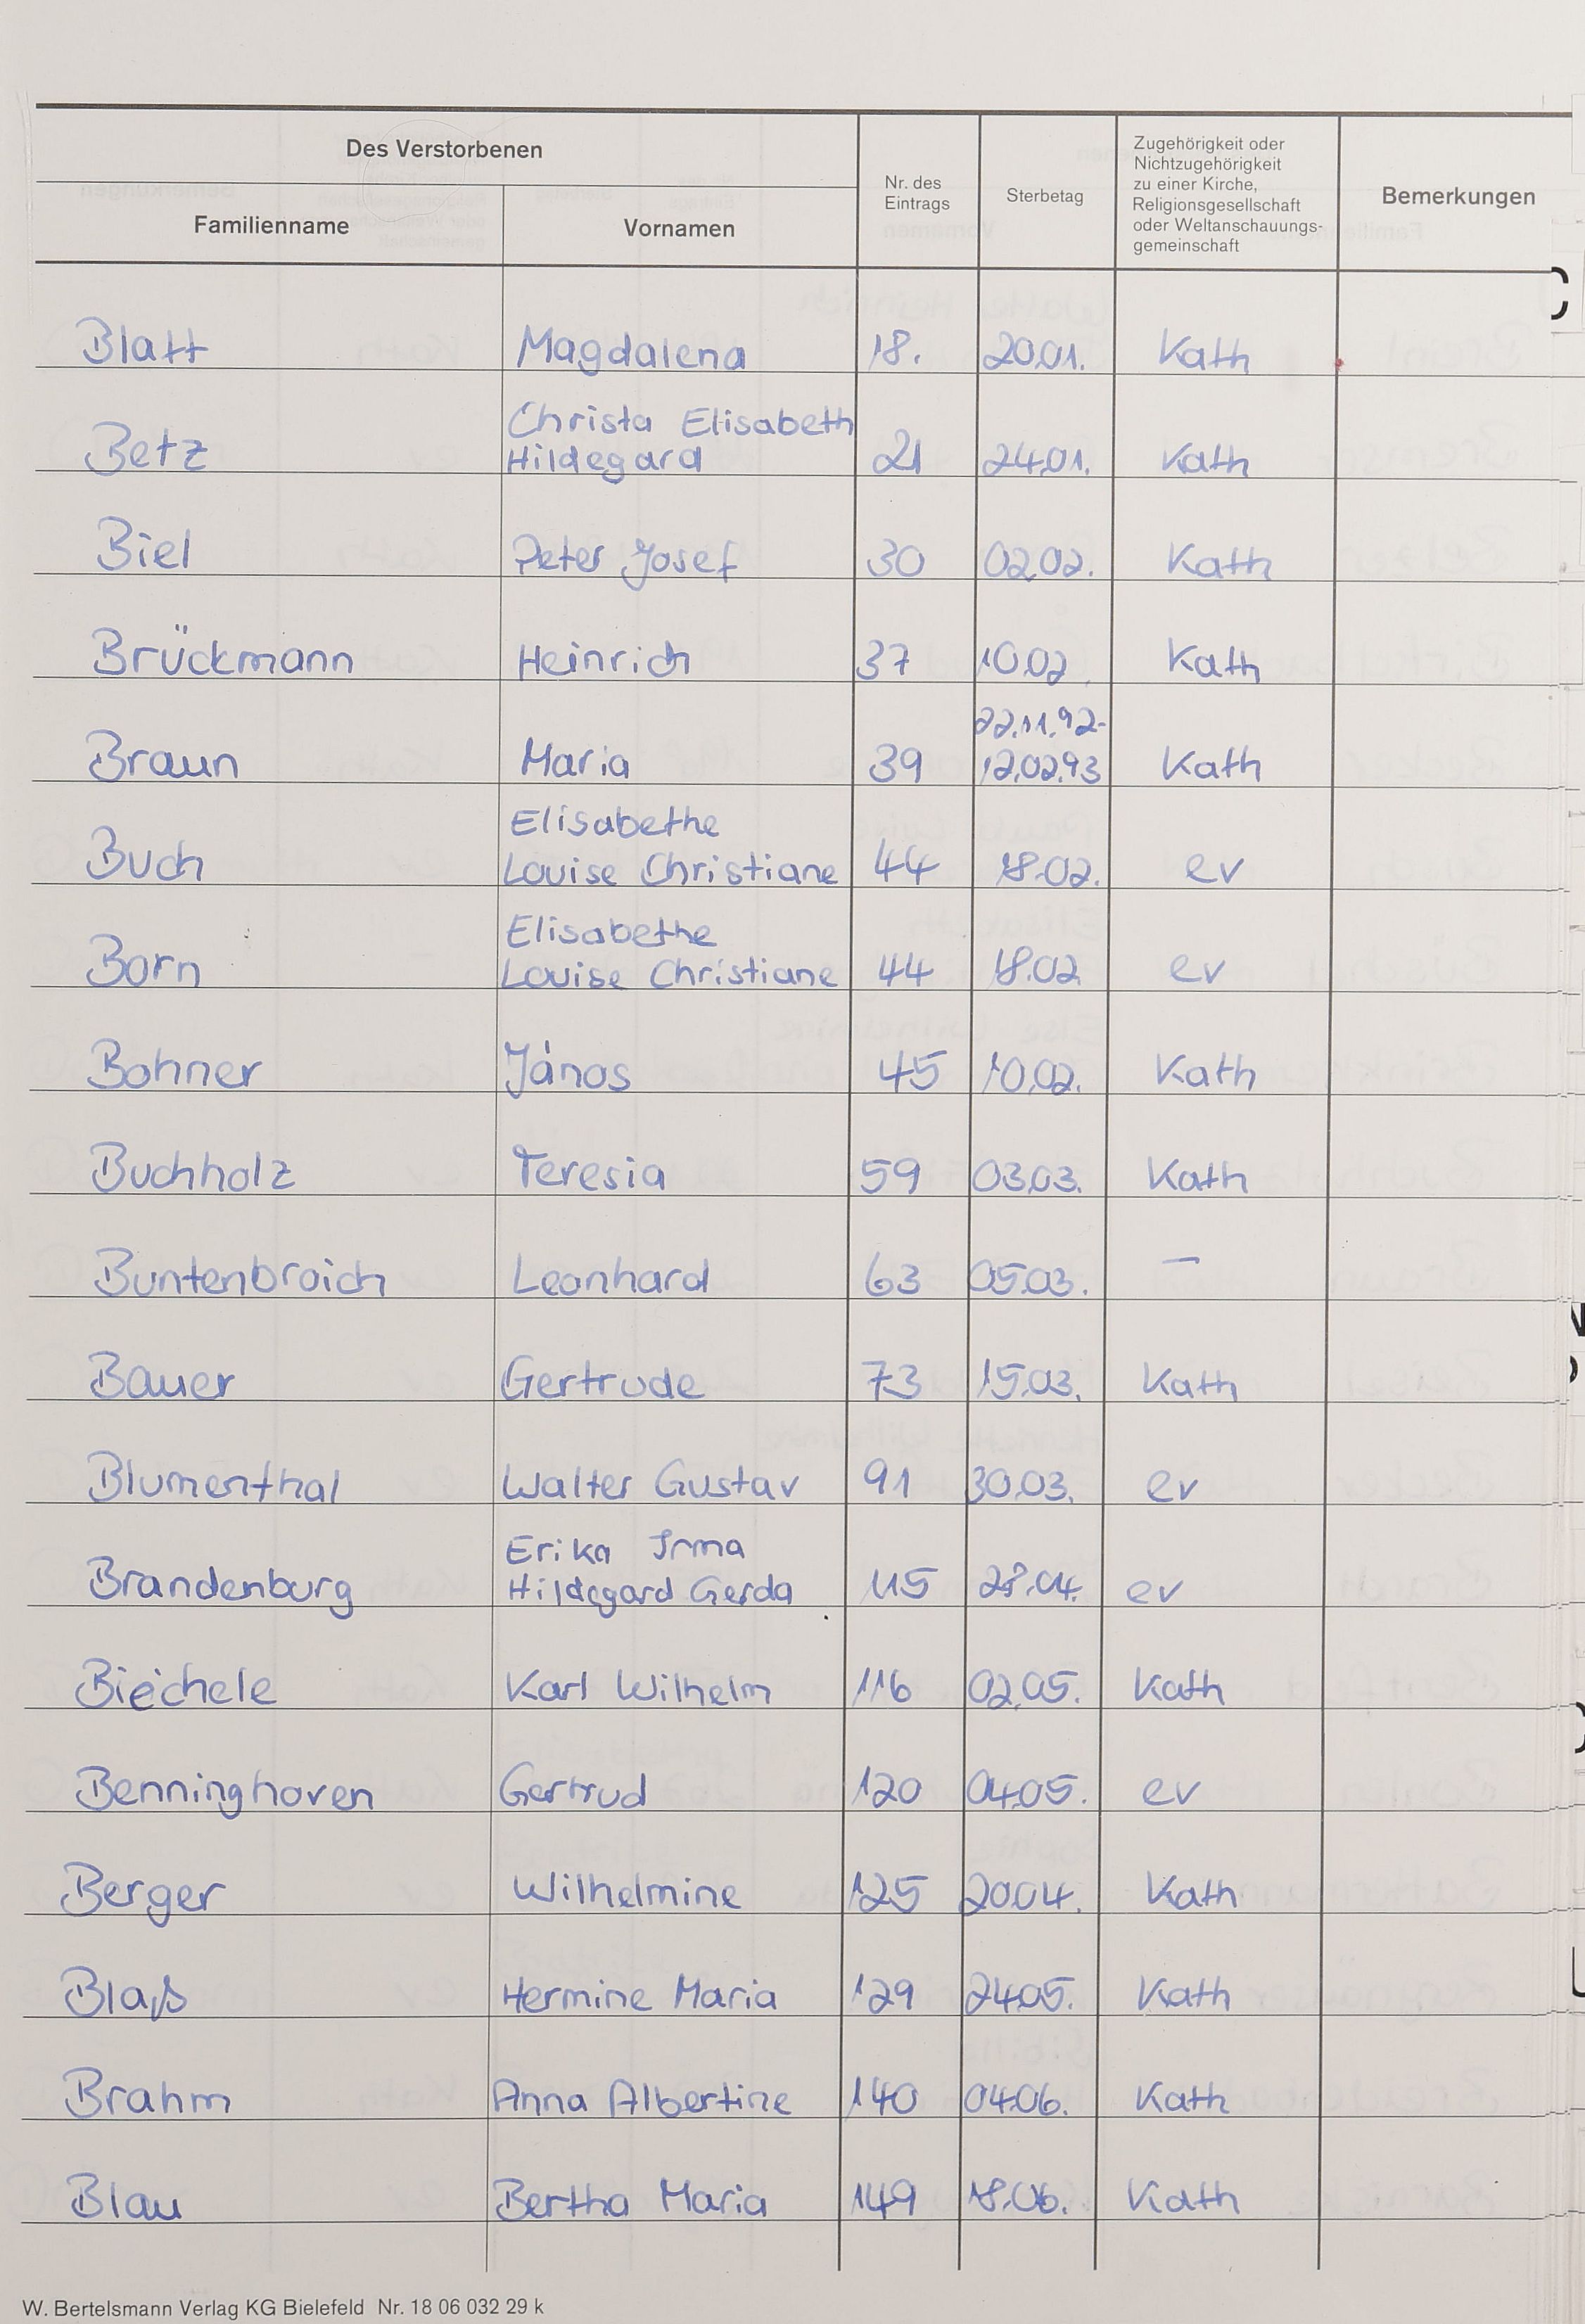 Des Verstorbenen
Familienname
Vornamen
Nr. des
Eintrags
Sterbetag
Zugehörigkeit oder
Nichtzugehörigkeit
zu einer Kirche,
Religionsgesellschaft
oder Weltanschauungs-
gemeinschaft
Bemerkungen
Blatt Magdalena 18. 20.01. Kath
Christa Elisabeth
Betz Hildegard 21 24.01. Kath
Biel Peter Josef 30 02.02. Kath
Brückmann Heinrich 37 10.02 Kath
22.11.92-
Braun Maria 39 12.02.93 Kath
Elisabethe
Buch Louise Christiane 44 18.02. ev
Elisabethe
Born Louise Christiane 44 18.02 ev
Bohner János 45 10.02. Kath
Buchholz Teresia 59 03.03. Kath
Buntenbroich Leonhard 63 05.03. —
Bauer Gertrude 73 15.03. Kath
Blumenthal Walter Gustav 91 30.03. ev
Erika Irma
Brandenburg Hildegard Gerda 115 28.04. ev
Biechele Karl Wilhelm 116 02.05. Kath
Benninghoven Gertrud 120 04.05. ev
Berger Wilhelmine 125 20.04. Kath
Blaß Hermine Maria 129 24.05. Kath
Brahm Anna Albertine 140 04.06. Kath
Blau Bertha Maria 149 18.06. Kath
W. Bertelsmann Verlag KG Bielefeld Nr. 18 06 032 29 k